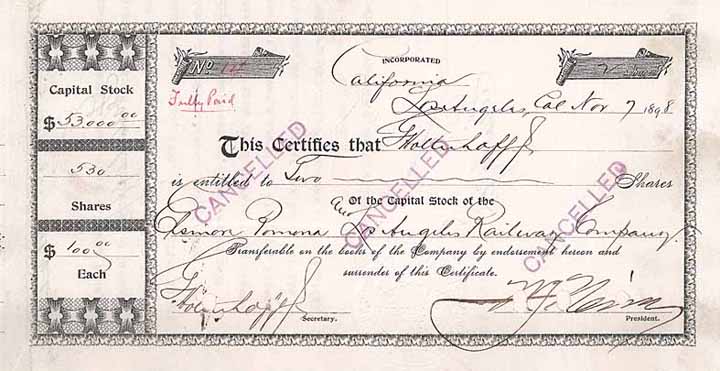 Capital Stock
$53,000.00
530
Shares
$100.00
Each
No
Fully Paid
INCORPORATED
California
2
Los Angeles, Cal Nov 7 1898
This Certifies that G Holterhoff Jr
is entitled to Two Shares
Of the Capital Stock of the
Pomona and Los Angeles Railway Company
Transferable on the books of the Company by endorsement hereon and
surrender of this Certificate.
G Holterhoff Jr
Secretary.
President.
CANCELLED
CANCELLED
CANCELLED